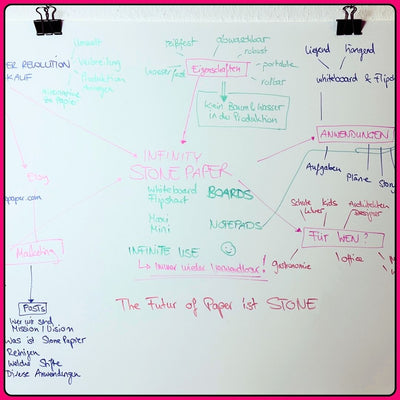 Umwelt
Verbreitung
Produktion
reißfest
abwaschbar
robust
portable
rollbar
wasserfest
Eigenschaften
Kein Baum & Wasser
in der Produktion
liegend
hängend
whiteboard & Flipch
ANWENDUNGEN
Aufgaben
Pläne
ER REVOLUTION
KAUF
INFINITY
STONE PAPER
Whiteboard
Flipchart
BOARDS
Maxi
Mini
NOTEPADS
INFINITE USE
↳ Immer wieder verwendbar!
Blog
paper.com
Marketing
Posts
Wer wir sind
Mission / Vision
Was ist Stone Papier
Reinigen
Welche Stifte
Diverse Anwendungen
Schule
Lehrer
Kids
Architekten
Designer
FÜR WEN?
gastronomie
office
The Futur of Paper ist STONE